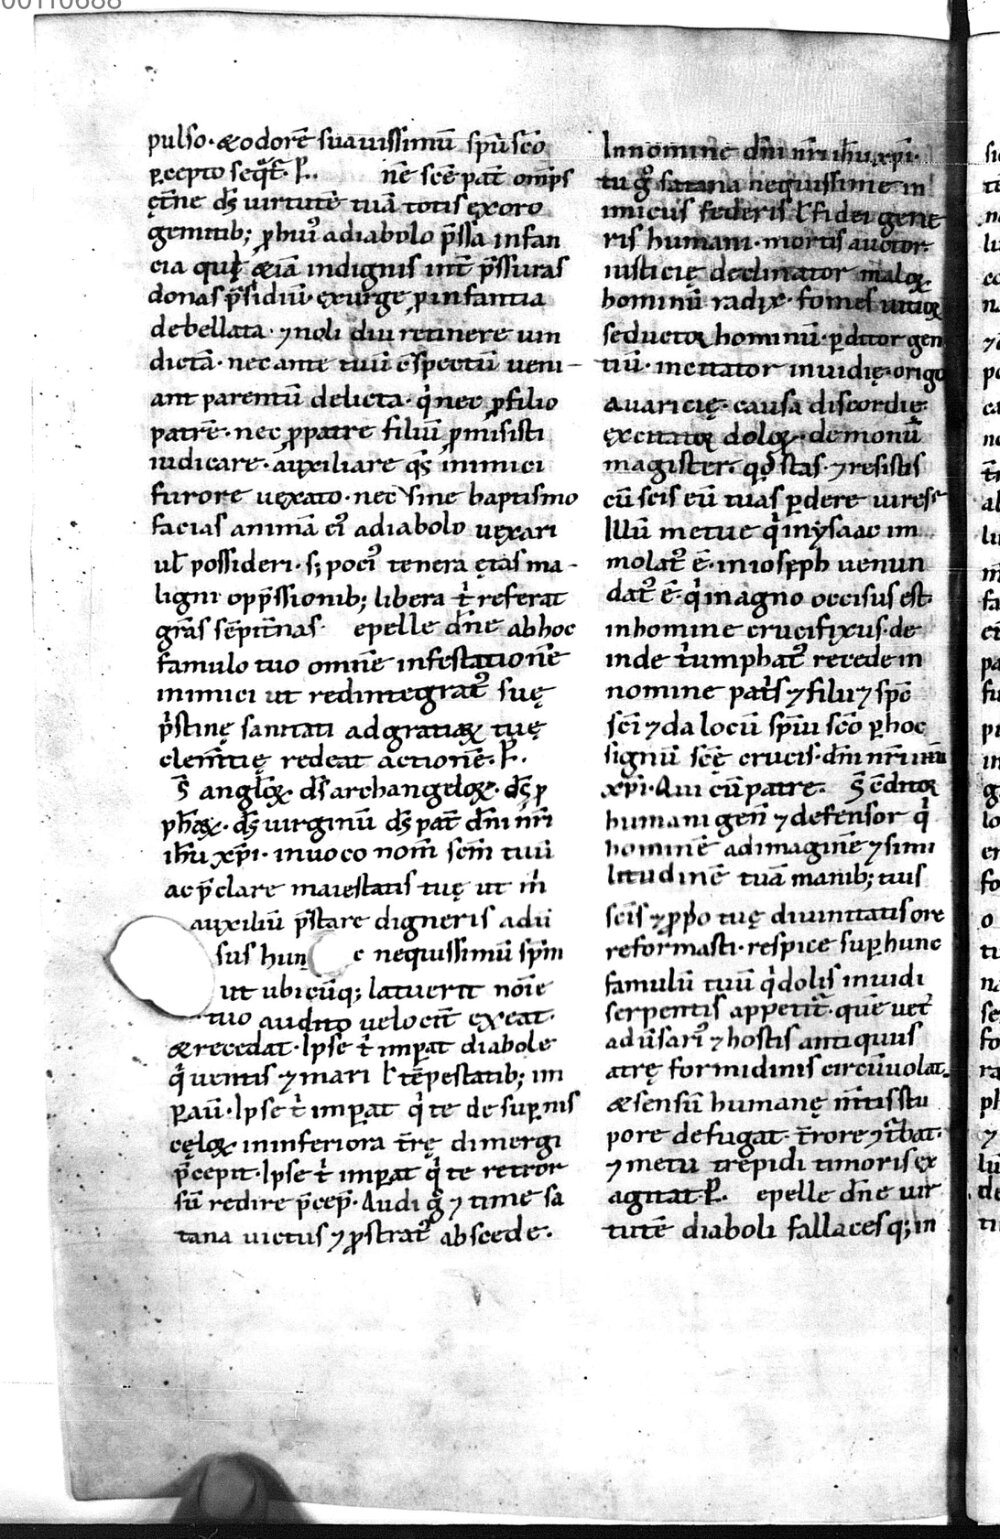 pulso· & odorē suauissimū sp̄u sc̄o
ꝑcepto seq̄t̄· P̄·
n̄e sc̄e pat̄ omp̄s
ęt̄ne ds̄ uirtutē tuā totis exoro
gemitib; ꝓ huiꝰ a diabolo p̄ssa infan
cia qui & iā indignis int̄ p̄ssuras
donas p̄sidiū· exurge ꝓ infantia
debellata· ⁊ noli diu retinere uin
dictā· nec ante tuū c̄spectū ueni-
ant parentū delicta· q̇ nec ꝓ filio
patrē· nec ꝓ patre filiū ꝓmisisti
iudicare· auxiliare qs̄ inimici
furore uexato· nec sine baptismo
facias animā eiꝰ a diabolo uexari
ul̄ possideri· s; pociꝰ tenera ętas ma-
ligni opp̄ssionib; libera t̄ referat
gr̄as sēpit̄nas· epelle dn̄e ab hoc
famulo tuo omnē infestationē
inimici ut redintegratꝰ suę
p̄stinę sanitati ad gratiaꝝ tuę
clem̄tię redeat actionē· P̄·
Ds̄ angl̄oꝝ· ds̄ archangeloꝝ· ds̄ ꝓ
ph̄aꝝ· ds̄ uirginū ds̄ pat̄ dn̄i nr̄i
ih̄u xp̄i· inuoco nom̄ scm̄ tuū
ac p̄clare maiestatis tuę ut m̄
auxiliū p̄stare digneris adū
sus hunc nequissimū sp̄m
ut ubicūq; latuerit noīe
tuo audito uelocit̄ exeat·
& recedat· Ipse t̄ imꝑat diabole
q̇ uentis ⁊ mari l̄ tēpestatib; im
ꝑau̇· Ipse t̄ imꝑat q̇ te de suꝑnis
cęloꝝ in inferiora t̄rę dimergi
p̄cepit· Ipse t̄ imꝑat q̇ te retror
sū redire p̄cep̄· Audi g̊ ⁊ time sa
tana uictus ⁊ ꝓstratꝰ abscede·
In nomine dn̄i nr̄i ih̄u xp̄i·
tu g̊ satana nequissime in
imicus federis l̄ fidei gene
ris humani· mortis auctor·
iusticię declinator maloꝝ
hominū radix· fomes uitioꝝ
seductor hominū· ꝑditor gen
tiū· incitator inuidię· origo
auaricię· causa discordię·
excitatoꝝ doloꝝ· demonū
magister· q̇d stas· ⁊ resistis
cū scis eū tuas ꝑdere uires·
Illū metue q̇ in ysaac im
molatꝰ ē· in ioseph uenun
datꝰ ē· q̇ in agno occisus est·
in homine crucifixus· de
inde t̄umphatꝰ recede in
nomine pat̄s ⁊ filii ⁊ sp̄c
sc̄i ⁊ da locū sp̄iu sc̄o ꝑ hoc
signū sc̄ę crucis· dn̄i nr̄i ih̄u
xp̄i· Qui cū patre· Ds̄ c̄ditoꝝ
humani gen̄ ⁊ defensor q̇
hominē ad imaginē ⁊ simi
litudinē tuā manib; tuis
sc̄is ⁊ ꝓprio tuę diuinitatis ore
reformasti· respice suꝑ hunc
famulū tuū q̇ dolis inuidi
serpentis appetit̄· quē uet̄
adūsariꝰ ⁊ hostis antiquus
atrę formidinis circūuolat·
& sensū humanę m̄tis stu
pore defugat· t̄rore ⁊ t̄bat·
⁊ metu trepidi timoris ex
agitat P̄· epelle dn̄e uir
tutē diaboli fallacesq; in